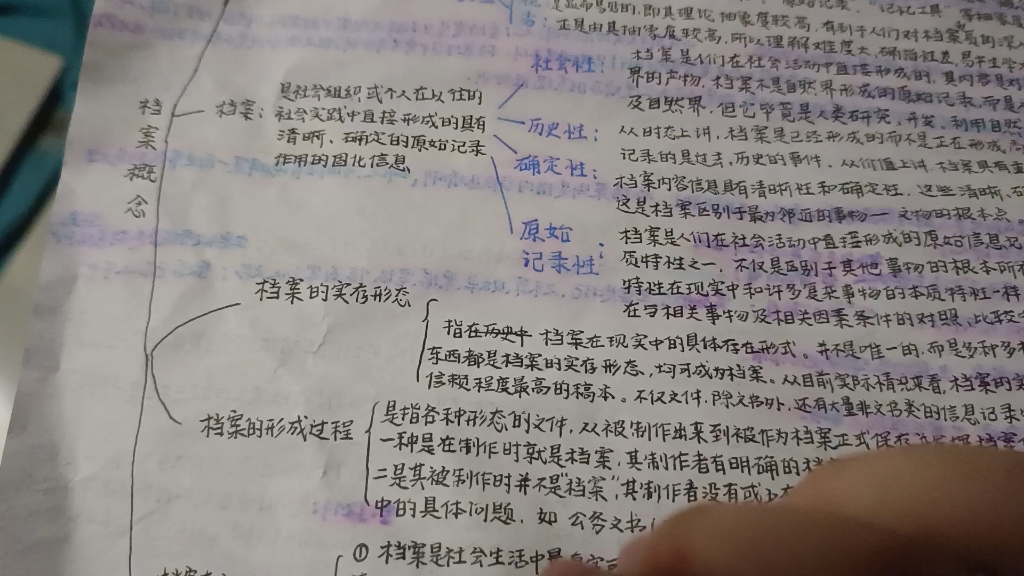 正是由其抽象度较高，所以理解难度大，确指性差，易产生
社会性：
档案是人们在社会活动中直接形成的，其内容是对
界的产物，档案不是自然界形成的原始记录，而是
及自然界，但它毕竟是人类研究、开发、利用自然
档案概念
档案：
是社会组织或个人在以往的
社会实践中直接形成的具有
清晰、确定的原始记录
作用的固化信息
历史性：
从时态上讲，档案是已经形成的而不是正在形成
记录的是过去、历史的事件，从价值上讲，档案具有
确定性：
档案内容信息具有清晰性和确定性，这些清晰、
这是档案区别于最为邻近的事物—文物的根本点。
原始
记录性：
档案是人们在社会活动中直接形成的原始信息记
质特性之一，不仅是区别于其他事物的根本所在
特性在现实中和许多复杂事物的本质特性一样
在与相关事物及相关因素条件的对照、比较
档案的实存形态
指在历史中 档案在现实中的具体存在形式。并不是唯一的，而是多种多
东西都是档案的实存形态，均可成为档案。从目前实际情况来看，档案的实
信赖程度最高的稿本。不仅文件，除文书外，还有大量非文书类的信息记录
档案的形成过程
是指各种形态的文件，从被制作出来到被作为档案正式保存
一种是在制作时就是档案，其制作者有明确的
二是其被制作时并不是"档案"，其制作者没有或
中的具体问题，如 公务文书
① 档案是社会生活中最